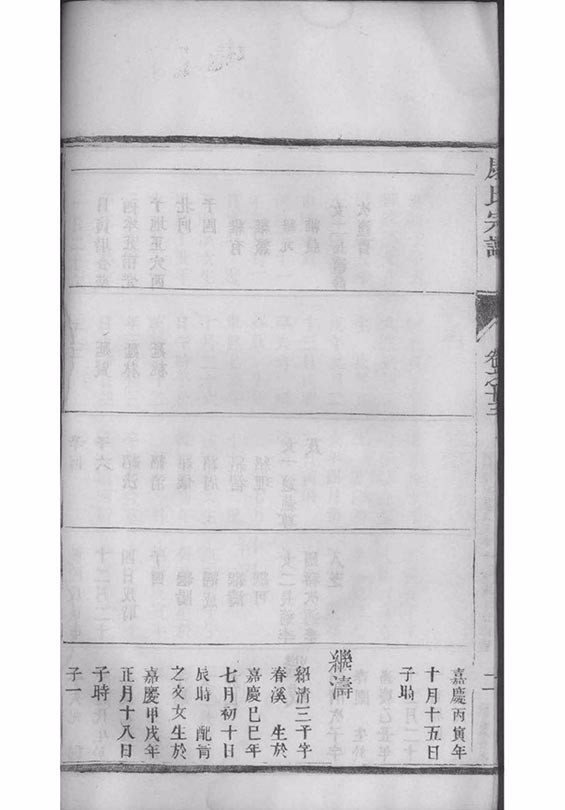 氏宗譜
卷之十三
嘉慶丙寅年
十月十五日
子時
繼濤
紹清三子字
春溪 生於
嘉慶己巳年
七月初十日
辰時 配
之文女生於
嘉慶甲戌年
正月十八日
子時
子一